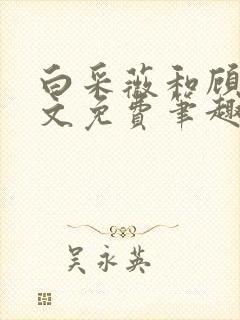 白采薇和顾
文免费笔趣
吴永英